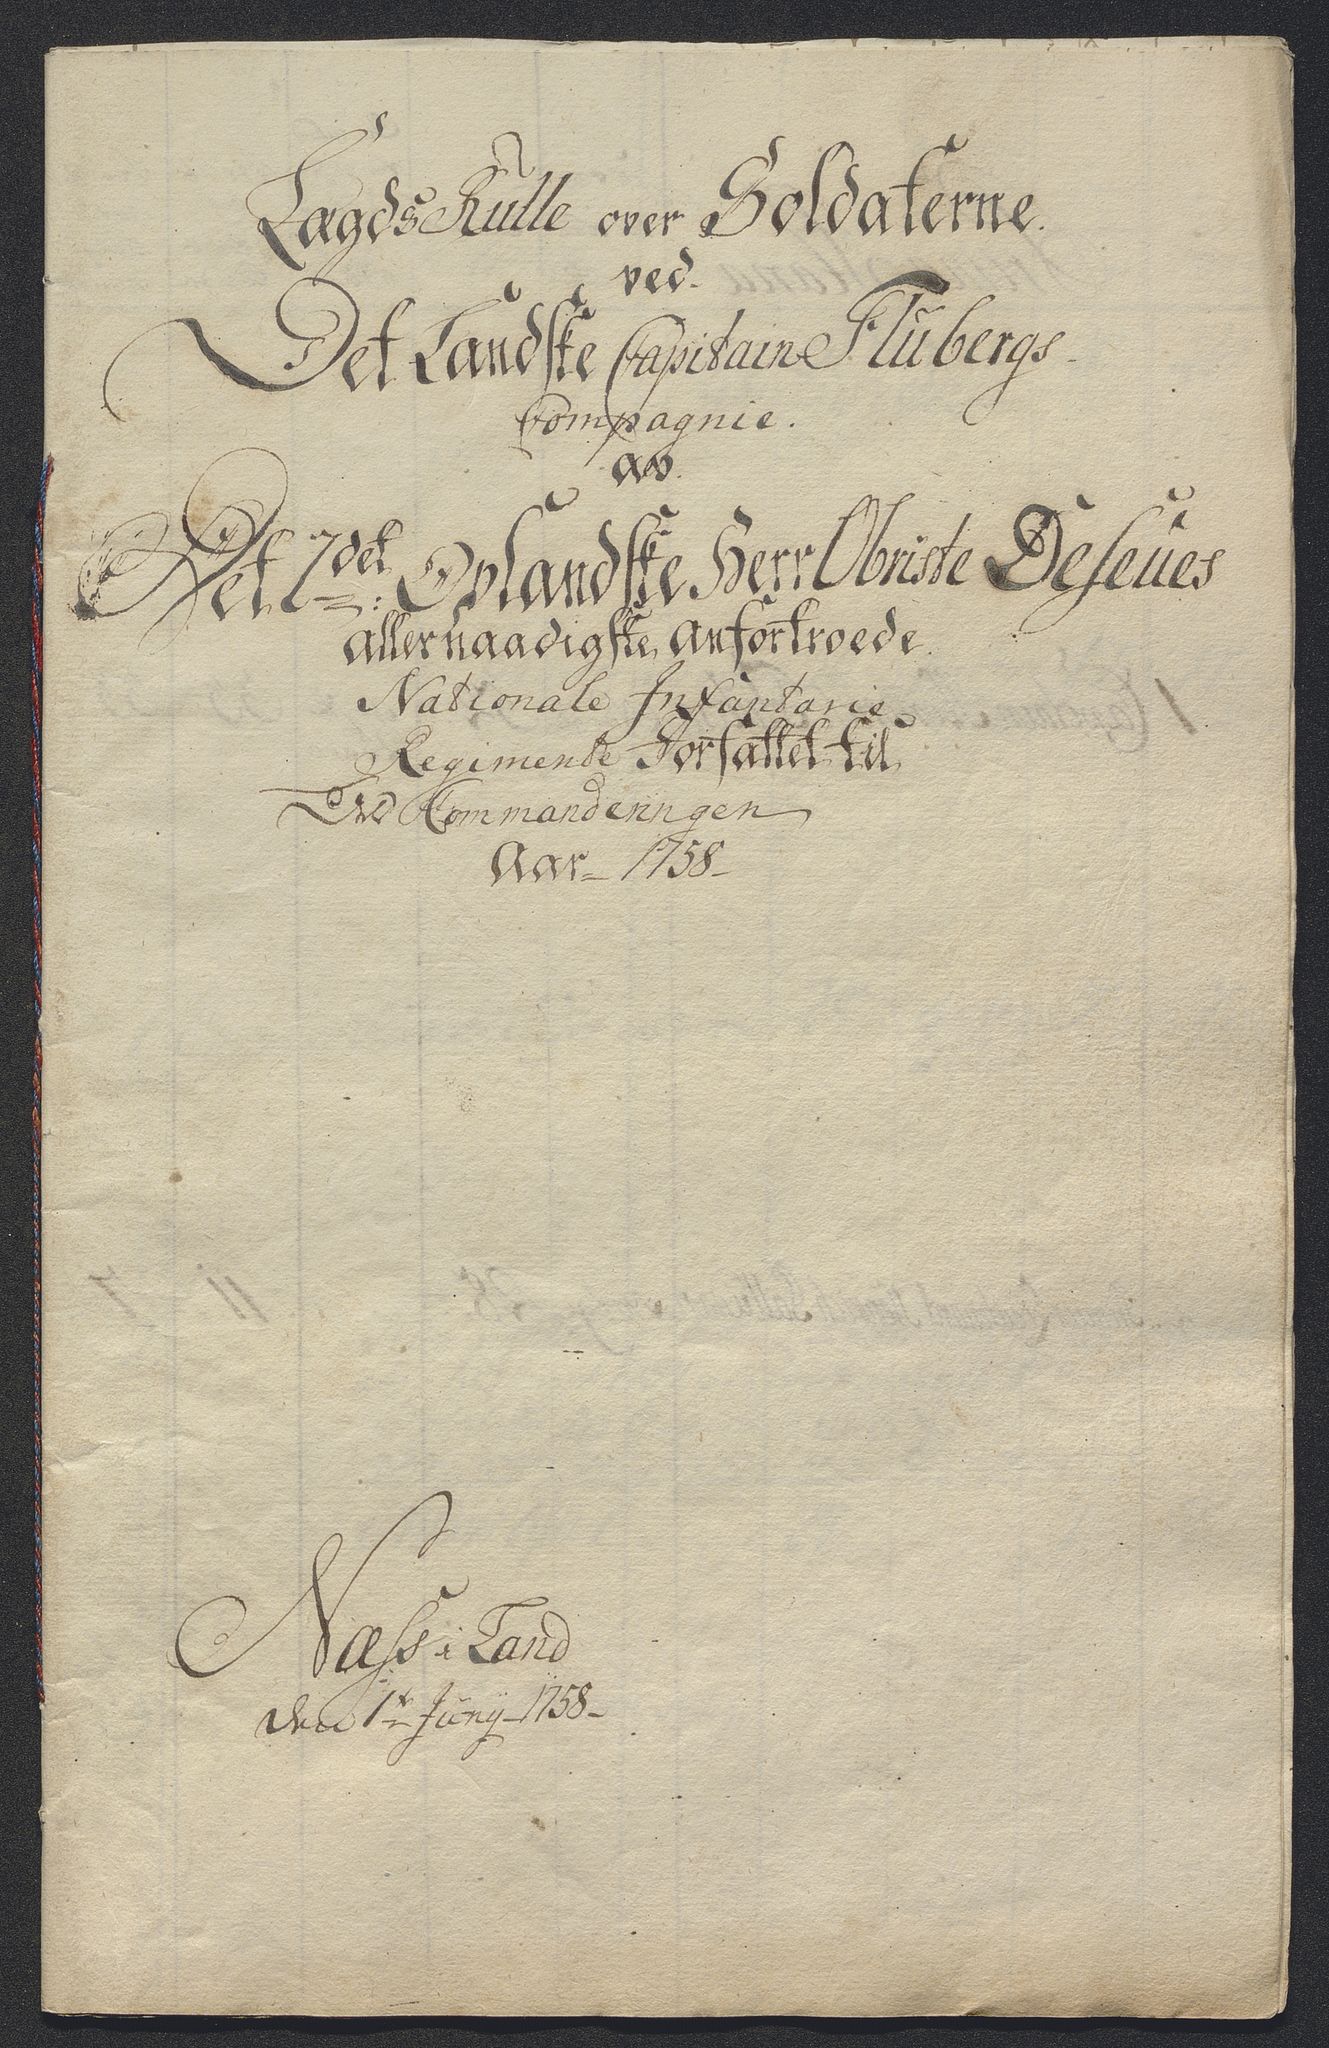 Lægds Rulle over Soldaterne.
ved.
Det Landske Capitain Flubergs
Compagnie.
av.
Det 7det Oplandske Herr Obriste Deseues
allernaadigste anfortroede
Nationale Infantarie
Regimente Forfattet til
Ud Kommanderingen
Aar 1758
Næss i Land
den 1t Juny 1758